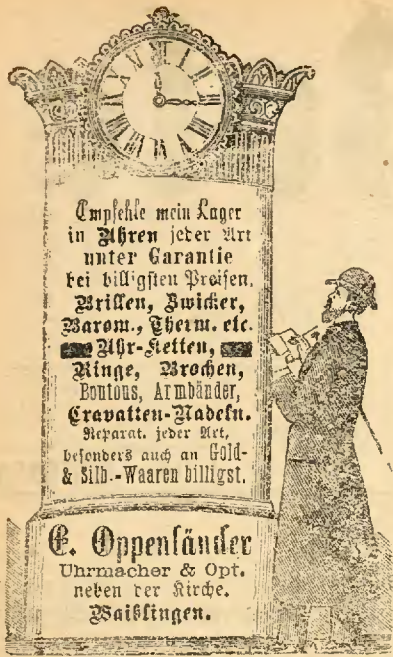 Empfehle mein Lager
in Uhren jeder Art
unter Garantie
bei billigsten Preisen,
Brillen, Zwicker,
Barom., Therm. etc.
Uhr-Ketten,
Ringe, Brochen,
Boutons, Armbänder,
Cravatten-Nadeln.
Reparat. jeder Art,
besonders auch an Gold-
& Silb.-Waaren billigst.
E. Oppenländer
Uhrmacher & Opt.
neben der Kirche.
Waiblingen.